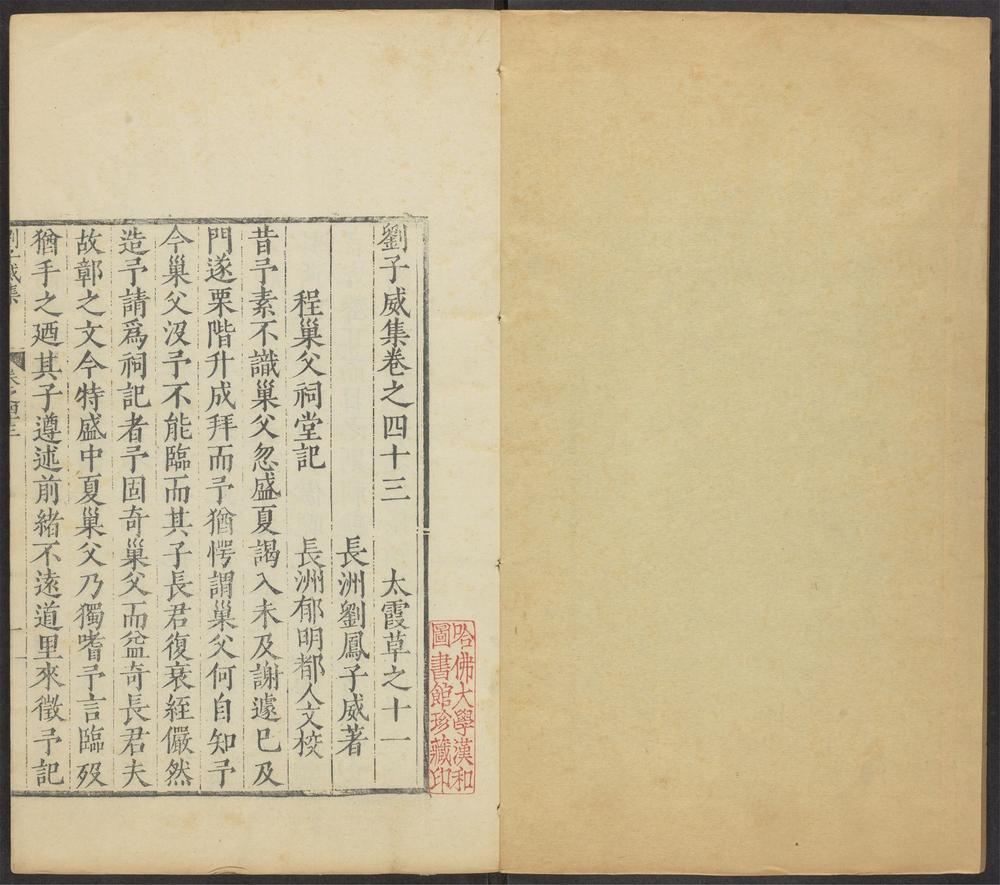 劉子威集卷之四十三 太霞草之十一
長洲劉鳳子威著
程巢父祠堂記 長洲郁明都人文校
昔予素不識巢父忽盛夏謁入未及謝遽已及
門遂栗階升成拜而予猶愕謂巢父何自知予
今巢父沒予不能臨而其子長君復衰絰儼然
造予請爲祠記者予固奇巢父而益奇長君夫
故鄣之文今特盛中夏巢父乃獨嗜予言臨歿
猶手之廼其子遵述前緒不遠道里來徵予記
哈佛大學漢和
圖書館珍藏印